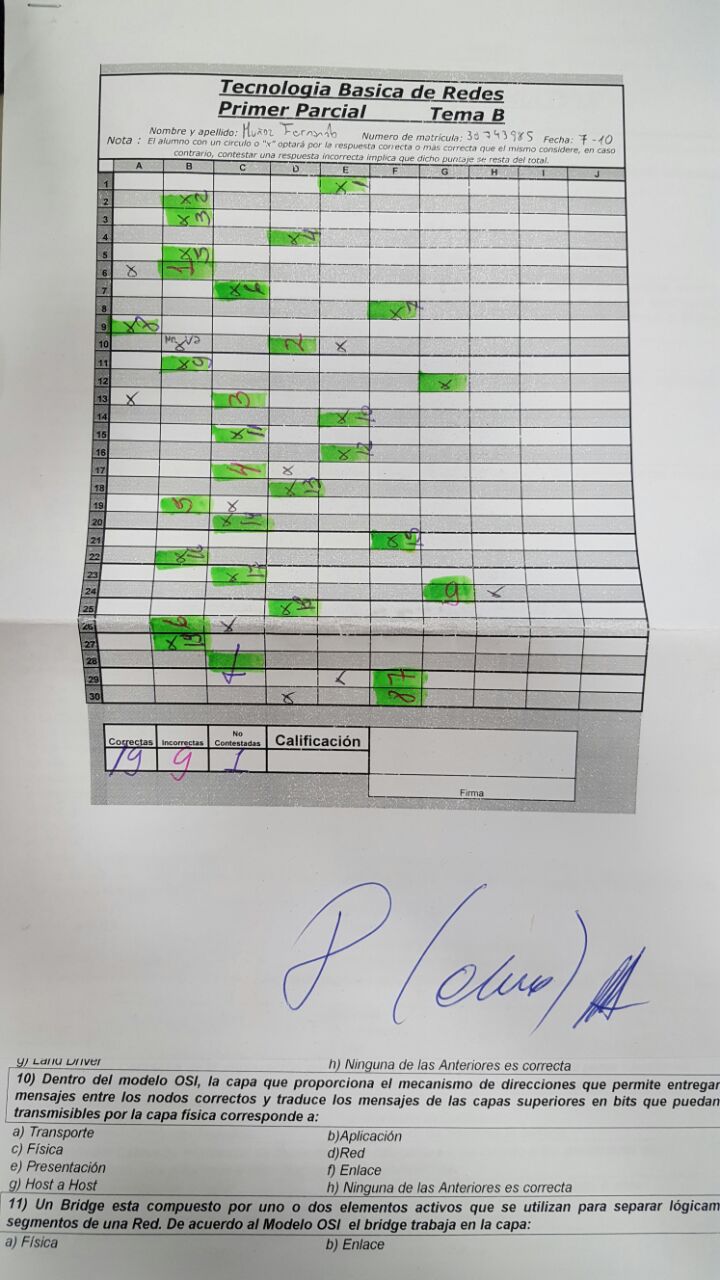 Tecnologia Basica de Redes
Primer Parcial Tema B
Nombre y apellido: Muñoz Fernando Numero de matrícula: 30743985 Fecha: 7-10
Nota : El alumno con un circulo o "x" optará por la respuesta correcta o más correcta que el mismo considere, en caso
contrario, contestar una respuesta incorrecta implica que dicho puntaje se resta del total.
A B C D E F G H I J
1 x 1
2 x 2
3 x 3
4 x 4
5 x 5
6 x 1
7 x 6
8 x 7
9 x 8
10 x 2 x
11 x 9
12 x
13 x 3
14 x 10
15 x 11
16 x 12
17 4 x
18 x 13
19 5 x
20 x 14
21 x 15
22 x 16
23 x 17
24 9 x
25 x 18
26 6 x
27 x 19
28
29 x 7
30 x 8
Correctas Incorrectas No Contestadas Calificación
19 9 1
Firma
g) Land Driver h) Ninguna de las Anteriores es correcta
10) Dentro del modelo OSI, la capa que proporciona el mecanismo de direcciones que permite entregar
mensajes entre los nodos correctos y traduce los mensajes de las capas superiores en bits que puedan
transmisibles por la capa física corresponde a:
a) Transporte b)Aplicación
c) Física d)Red
e) Presentación f) Enlace
g) Host a Host h) Ninguna de las Anteriores es correcta
11) Un Bridge esta compuesto por uno o dos elementos activos que se utilizan para separar lógicam
segmentos de una Red. De acuerdo al Modelo OSI el bridge trabaja en la capa:
a) Física b) Enlace